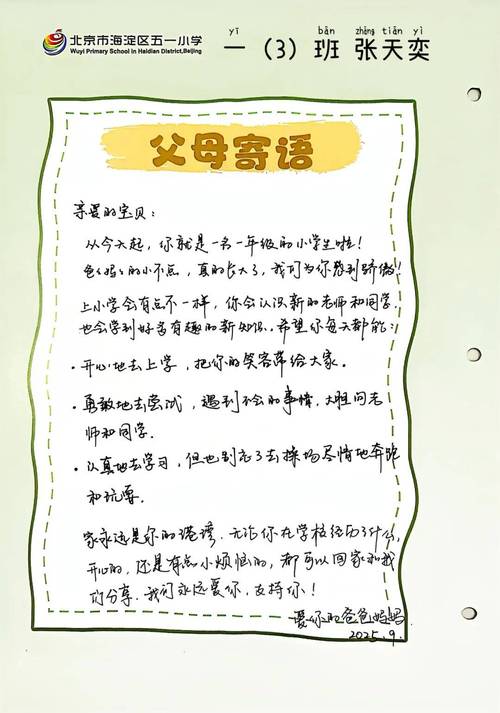 北京市海淀区五一小学
Wuyi Primary School In Haidian District,Beijing
yī bān zhāng tiān yì
一（3）班 张天奕
父母寄语
亲爱的宝贝：
从今天起，你就是一名一年级的小学生啦！
爸妈的小不点，真的长大了，我们为你感到骄傲！
上小学会有点不一样，你会认识新的老师和同学，
也会学到好多有趣的新知识。希望你每天都能：
·开心地去上学，把你的笑容带给大家。
·勇敢地去尝试，遇到不会的事情，大胆问老
师和同学。
·认真地去学习，但也别忘了去操场尽情地奔跑
和玩耍。
家永远是你的港湾，无论你在学校经历了什么，
开心的，还是有点小烦恼的，都可以回家和我
们分享。我们永远爱你，支持你！
爱你的爸爸妈妈
2025.9.